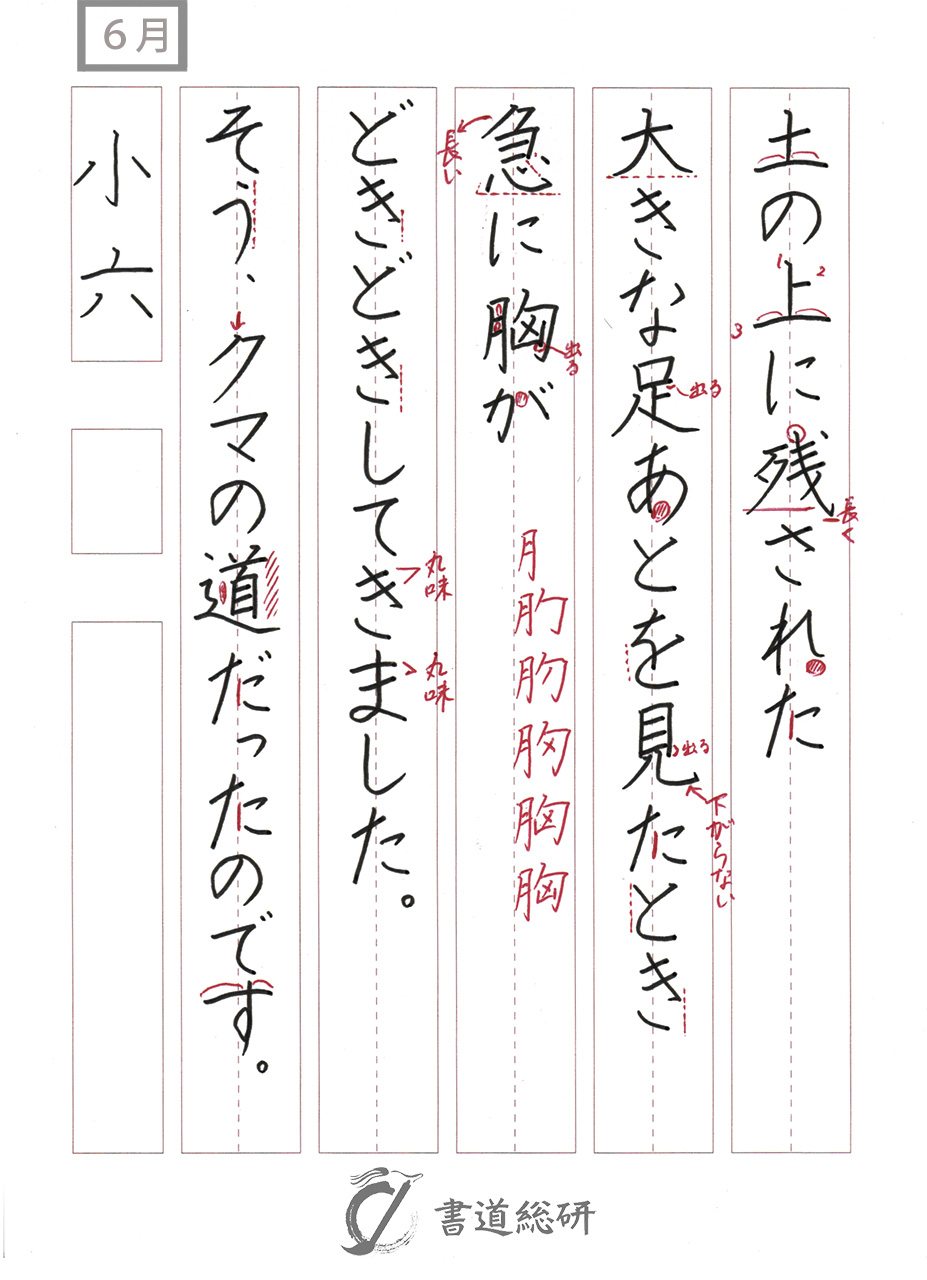 6月
土の上に残された
1
2
3
長く
大きな足あとを見たとき
出る
出る
下がらない
急に胸が
長い
出る
月
肑
肑
胸
胸
胸
どきどきしてきました。
丸味
丸味
そう、クマの道だったのです。
小六
書道総研